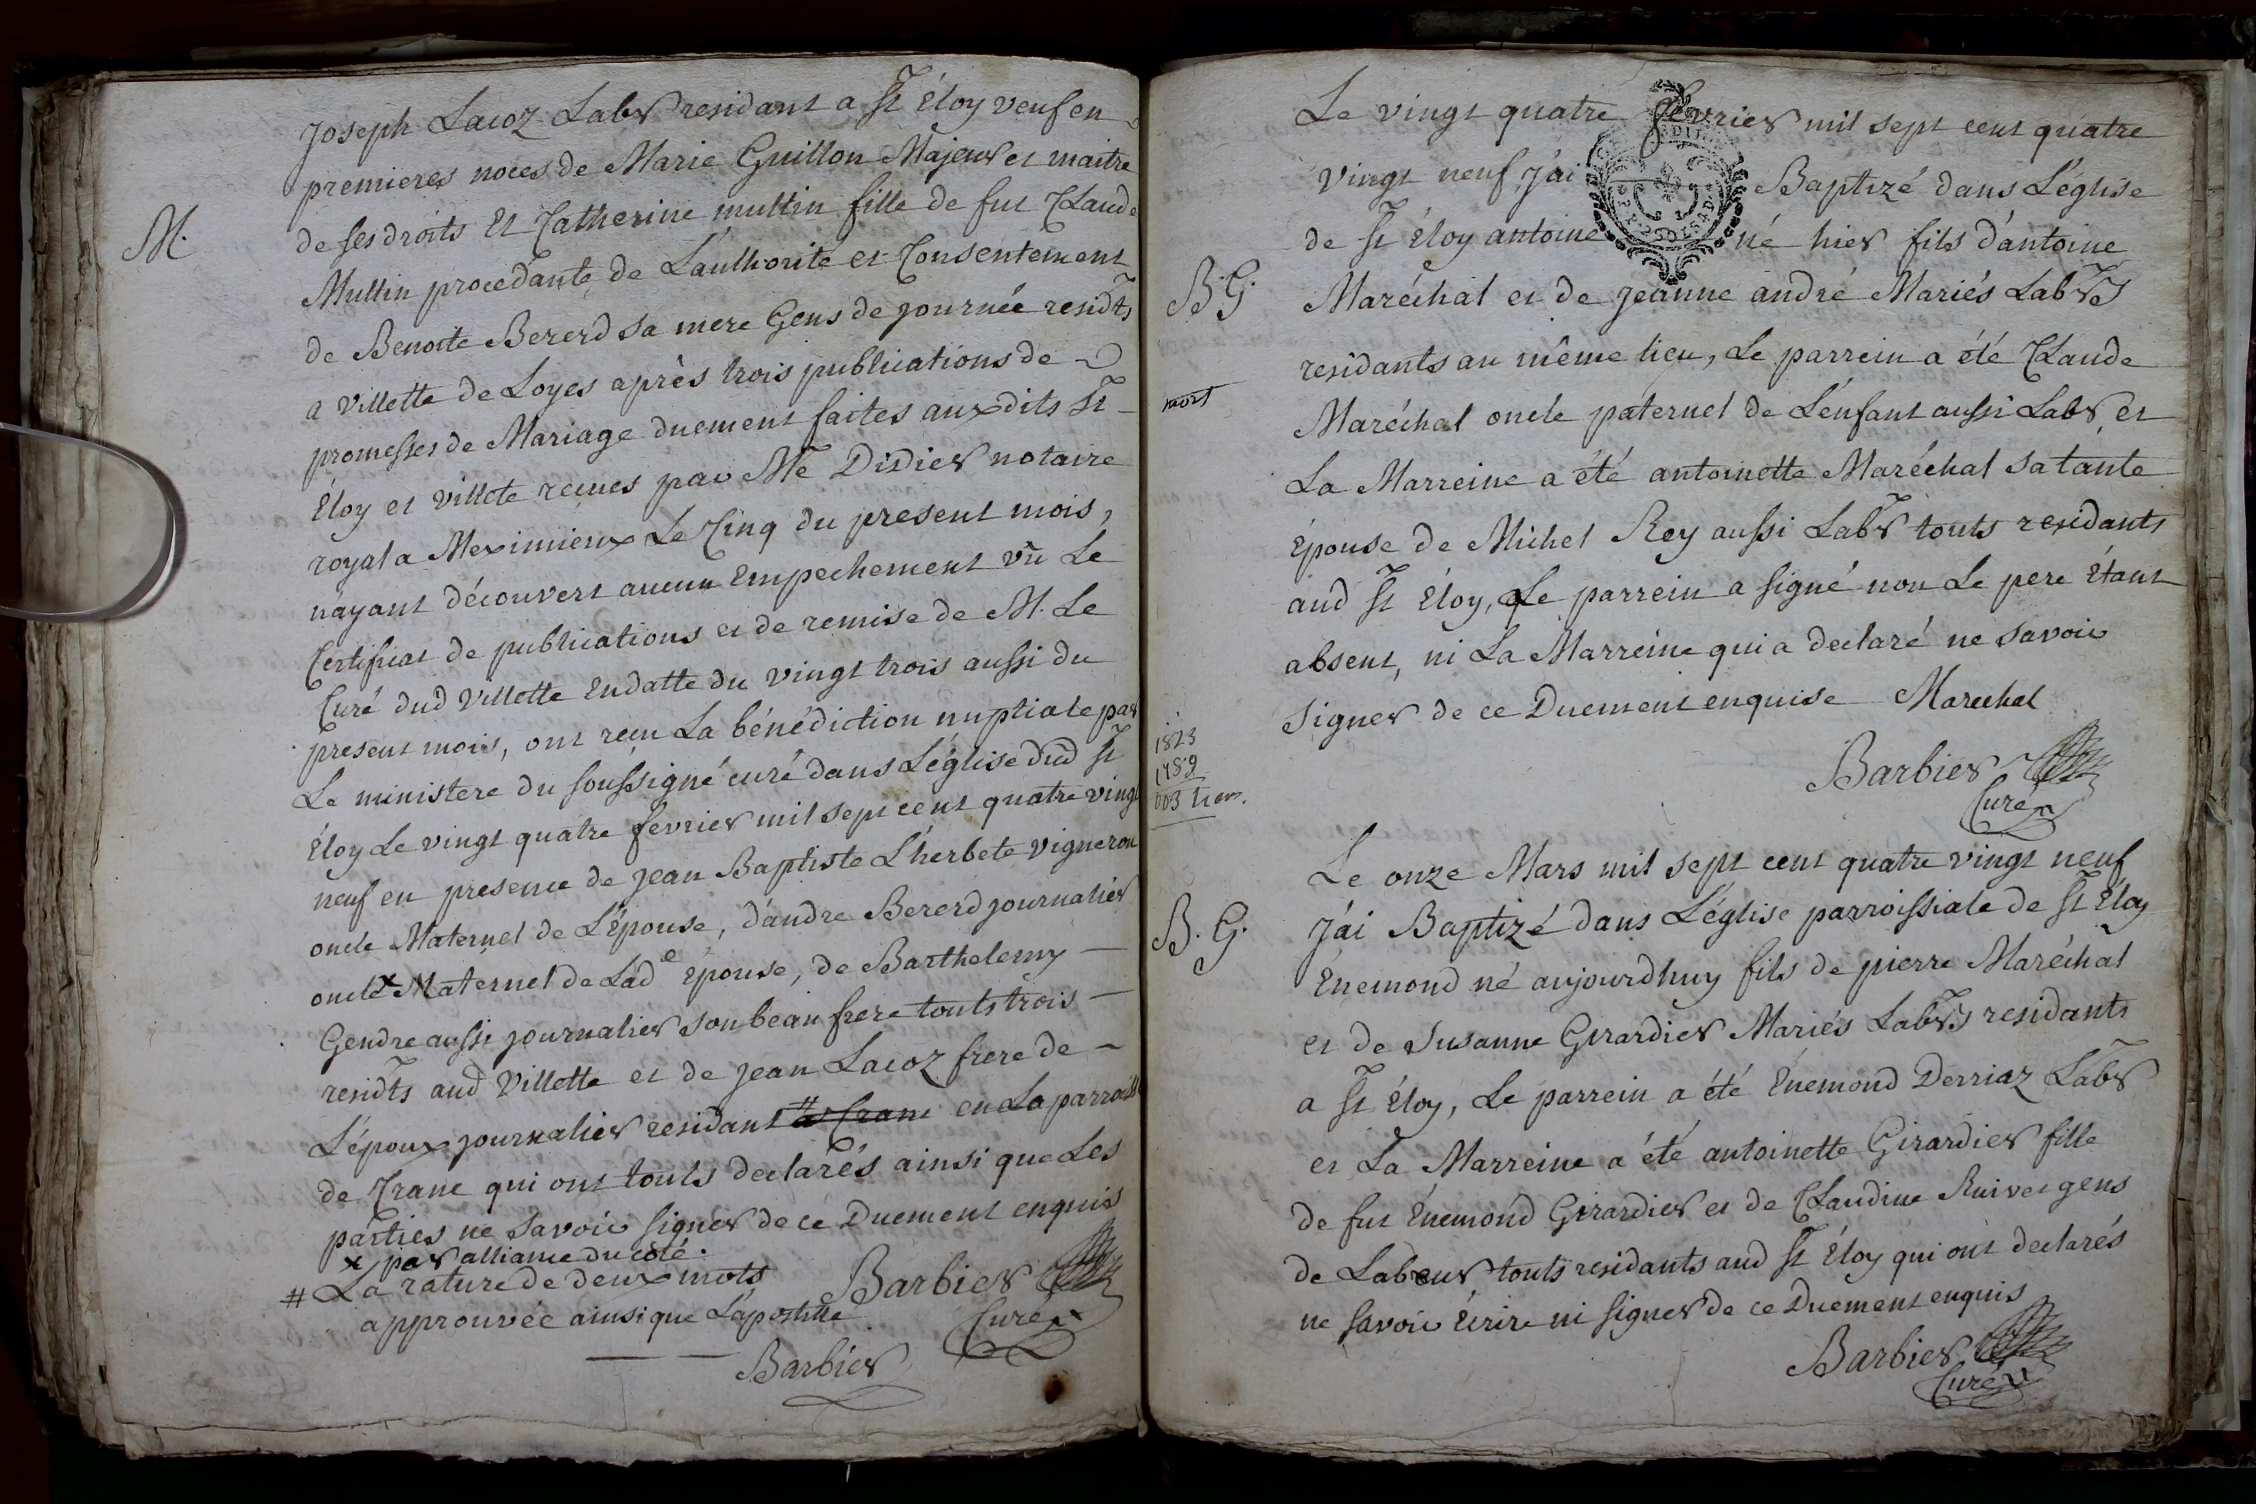 Joseph Lacoz Labr residant a St Éloy veuf en
premieres noces de Marie Guillon Majeur et maitre
M.
de ses droits Et Catherine muttin fille de fut Claude
Muttin procedante de L'authorité et Consentement
de Benoite Bererd sa mere Gens de journée residts
a Villette de Loyes après trois publications de
promesses de Mariage duement faites auxdits St
Éloy et villete recues par Me Didier notaire
royal a Meximieux Le Cinq du present mois,
n'ayant découvert aucun Empechement vû Le
Certificat de publications et de remise de M. Le
Curé dud Villette Endatte du vingt trois aussi du
present mois, ont recu La bénédiction nuptiale par
Le ministere du soussigné curé dans L'église dud St
Éloy Le vingt quatre fevrier mil sept cent quatre vingt
neuf en presence de jean Baptiste L'herbete vigneron
oncle Maternel de L'Épouse, d'andre Bererd journalier
oncle x Maternel de Lade Épouse, de Barthelemy
Gendre aussi journalier son beau frere touts trois
residts aud Villette et de jean Lacoz frere de
L'époux journalier residant # a Crane en La parroisse
de Crane qui ont touts declarés ainsi que Les
parties ne savoir signer de ce Duement enquis
x par alliance du coté.
# La rature de deux mots
approuvée ainsi que L'apostille
Barbier
Curé
Barbier
Le vingt quatre fevrier mil sept cent quatre
vingt neuf j'ai Baptizé dans L'église
de St Éloy antoine né hier fils d'antoine
B. G.
Maréchal et de jeanne andré Mariés Labrs
residants au même lieu, Le parrein a été Claude
mort
Maréchal oncle paternel de L'enfant aussi Labr, et
La Marreine a été antoinette Maréchal sa tante
Épouse de Michel Rey aussi Labr touts residants
aud St Éloy, Le parrein a signé non Le pere Étant
absent, ni La Marreine qui a declaré ne savoir
signer de ce Duement enquise Marechal
1823
1789
Barbier
Curé
Le onze Mars mil sept cent quatre vingt neuf
B. G.
J'ai Baptizé dans L'église parroissiale de St Éloy
Énemond né aujourdhuy fils de pierre Maréchal
et de Susanne Girardier Mariés Labrs residants
a St Éloy, Le parrein a été Énemond Derriaz Labr
et La Marreine a été antoinette Girardier fille
de fut Énemond Girardier et de Claudine Ruivet gens
de Labeur touts residants aud St Éloy qui ont declarés
ne savoir Écrire ni signer de ce Duement enquis
Barbier
Curé